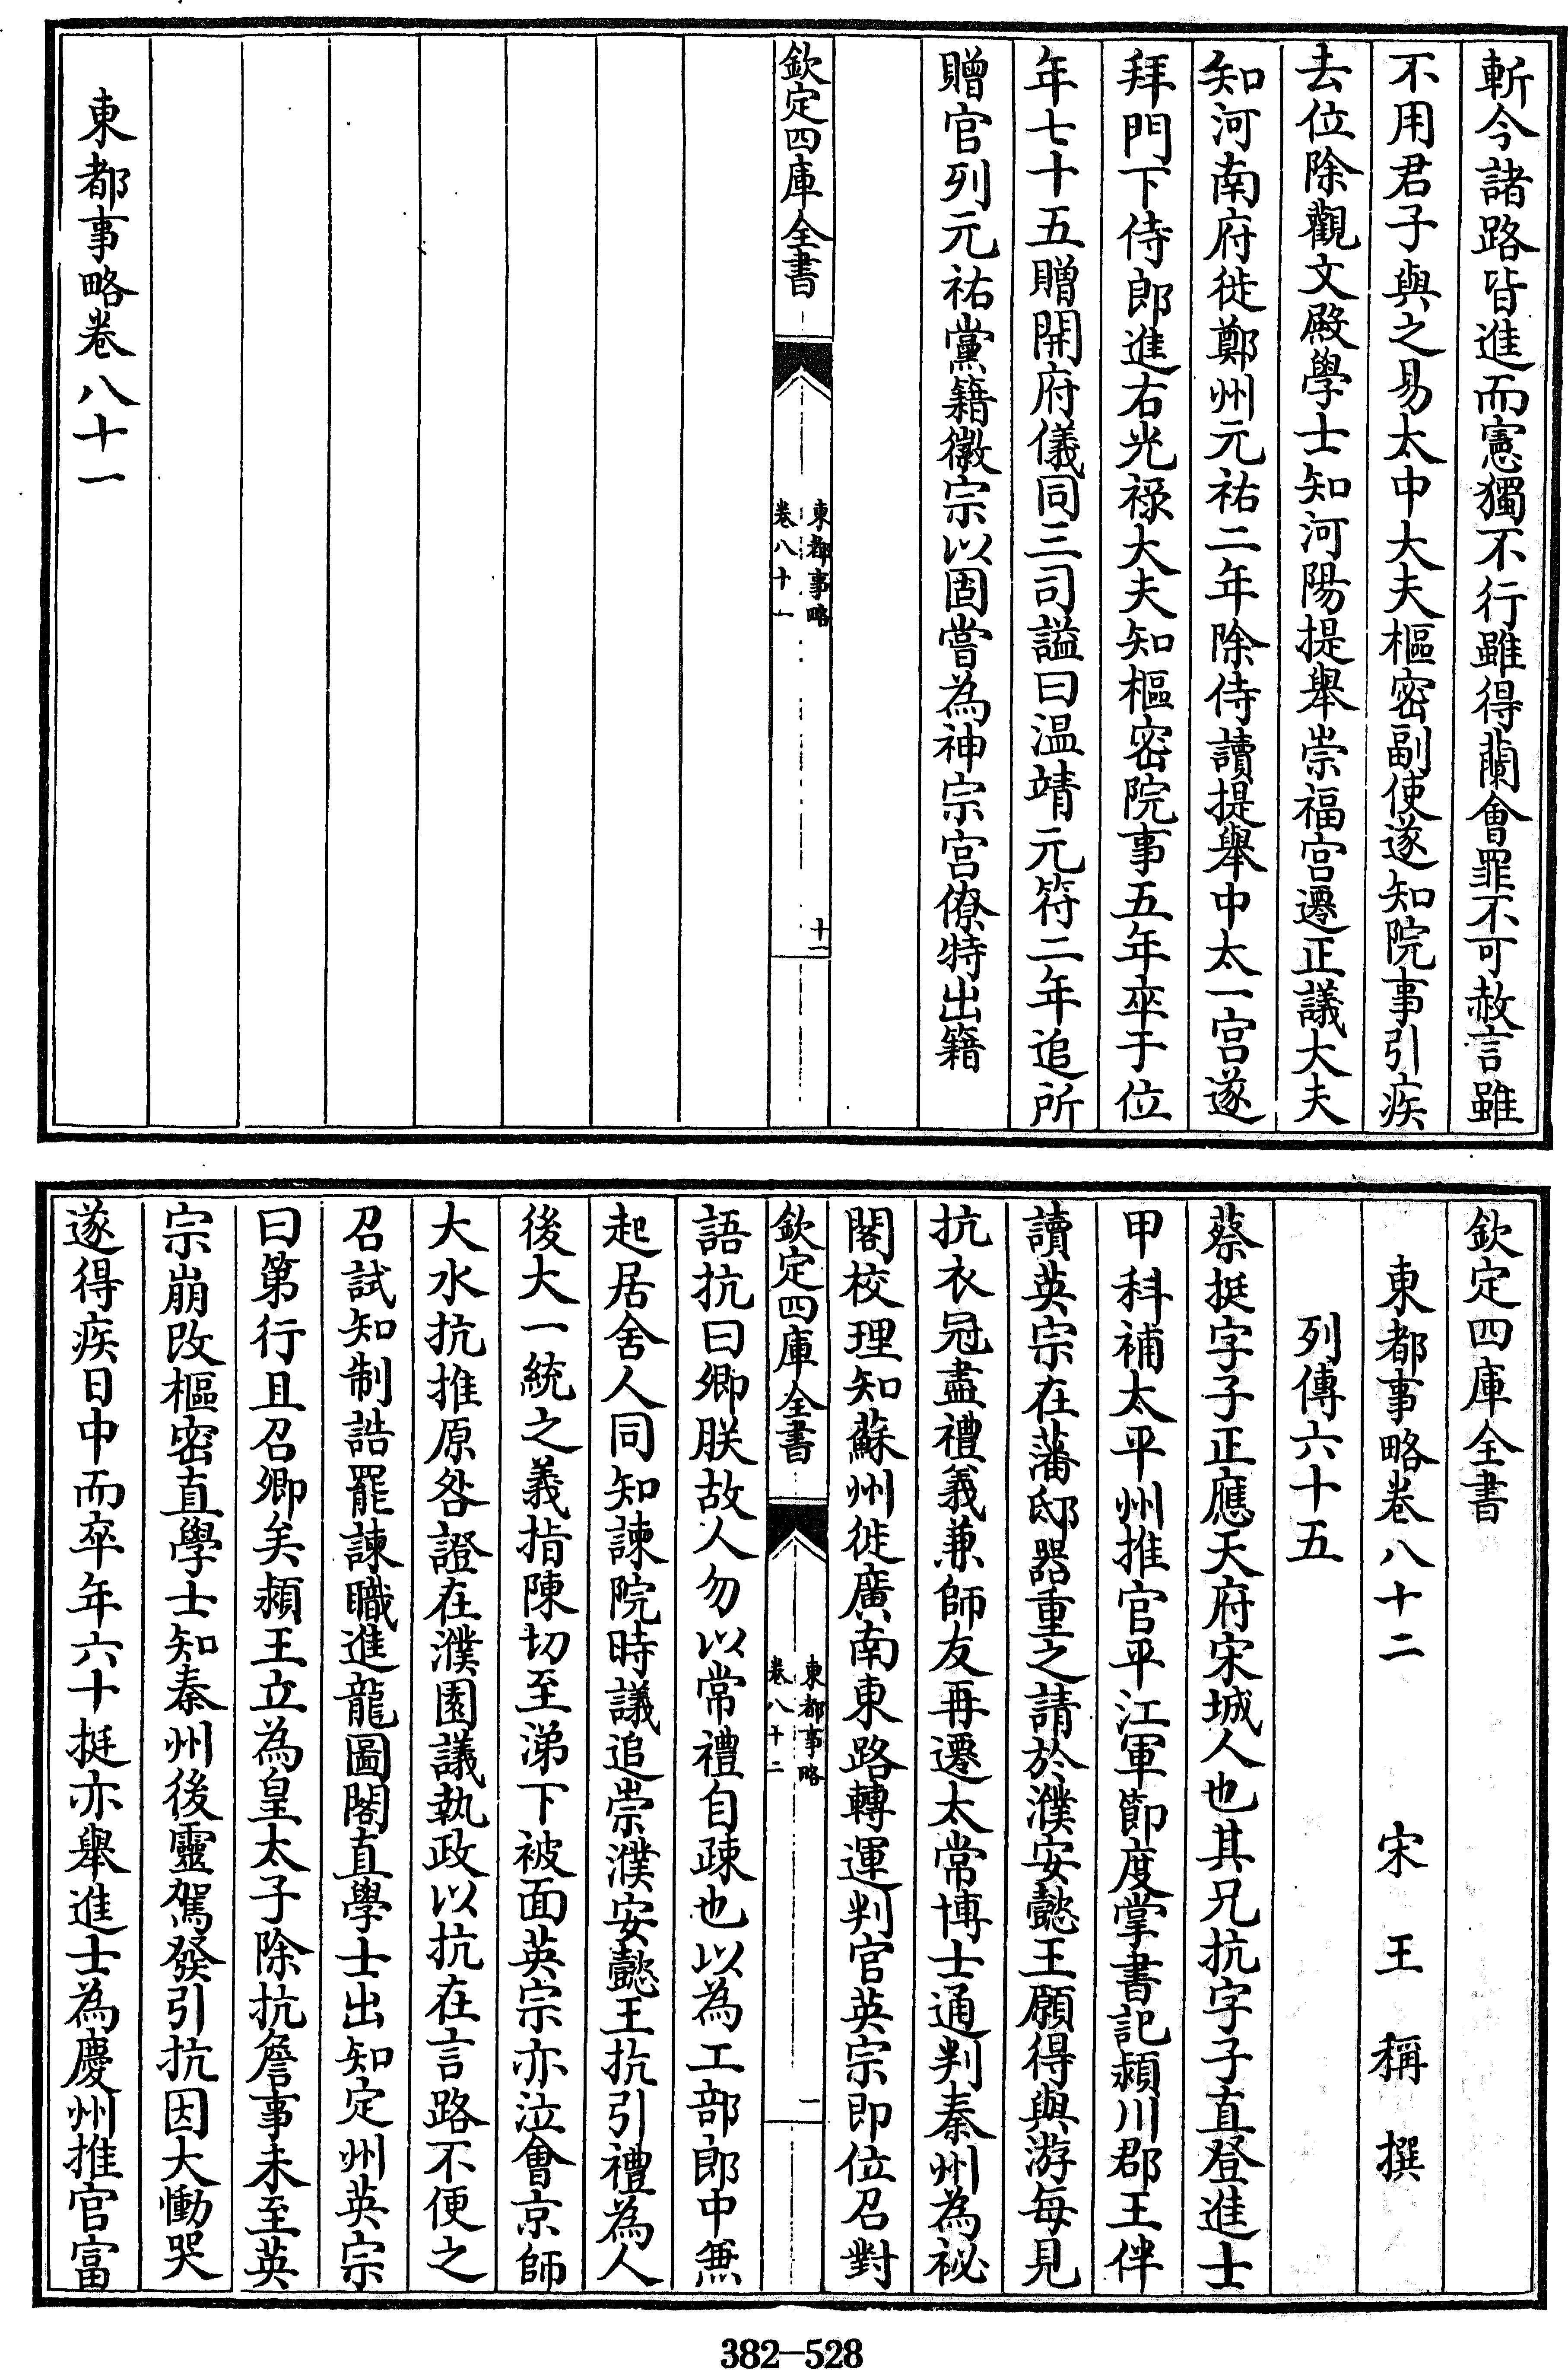 斬今諸路皆進而憲獨不行雖得蘭會罪不可赦言雖
不用君子與之易太中大夫樞密副使遂知院事引疾
去位除觀文殿學士知河陽提舉崇福宮遷正議大夫
知河南府徙鄭州元祐二年除侍讀提舉中太一宮遂
拜門下侍郎進右光祿大夫知樞密院事五年卒于位
年七十五贈開府儀同三司謚曰溫靖元符二年追所
贈官列元祐黨籍徽宗以固嘗為神宗宮僚特出籍
欽定四庫全書
東都事略
卷八十一
十一
東都事略卷八十一
欽定四庫全書
東都事略卷八十二 宋 王 稱 撰
列傳六十五
蔡挺字子正應天府宋城人也其兄抗字子直登進士
甲科補太平州推官平江軍節度掌書記潁川郡王伴
讀英宗在藩邸器重之請於濮安懿王願得與游每見
抗衣冠盡禮義兼師友再遷太常博士通判秦州為祕
閣校理知蘇州徙廣南東路轉運判官英宗即位召對
欽定四庫全書
東都事略
卷八十二
一
語抗曰卿朕故人勿以常禮自疎也以為工部郎中兼
起居舍人同知諫院時議追崇濮安懿王抗引禮為人
後大一統之義指陳切至涕下被面英宗亦泣會京師
大水抗推原咎證在濮園議執政以抗在言路不便之
召試知制誥罷諫職進龍圖閣直學士出知定州英宗
曰第行且召卿矣潁王立為皇太子除抗詹事未至英
宗崩改樞密直學士知秦州後靈駕發引抗因大慟哭
遂得疾日中而卒年六十挺亦舉進士為慶州推官富
382-528